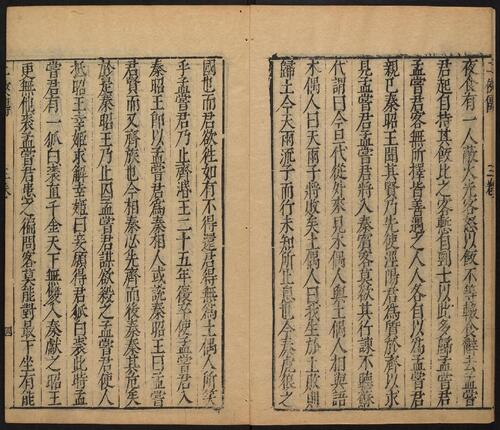 夜食有一人蔽火光客怒以飯不等輟食辭去孟嘗
君起自持其飯比之客慙自剄士以此多歸孟嘗君
孟嘗君客無所擇皆善遇之人人各自以為孟嘗君
親己秦昭王聞其賢乃先使涇陽君為質於齊以求
見孟嘗君孟嘗君將入秦賓客莫欲其行諫不聽蘇
代謂曰今旦代從外來見木偶人與土偶人相與語
木偶人曰天雨子將敗矣土偶人曰我生於土敗則
歸土今天雨流子而行未知所止息也今秦虎狼之
國也而君欲往如有不得還君得無為土偶人所笑
乎孟嘗君乃止齊湣王二十五年復卒使孟嘗君入
秦昭王即以孟嘗君為秦相人或說秦昭王曰孟嘗
君賢而又齊族也今相秦必先齊而後秦秦其危矣
於是秦昭王乃止囚孟嘗君謀欲殺之孟嘗君使人
抵昭王幸姬求解幸姬曰妾願得君狐白裘此時孟
嘗君有一狐白裘直千金天下無雙入秦獻之昭王
更無他裘孟嘗君患之徧問客莫能對最下坐有能